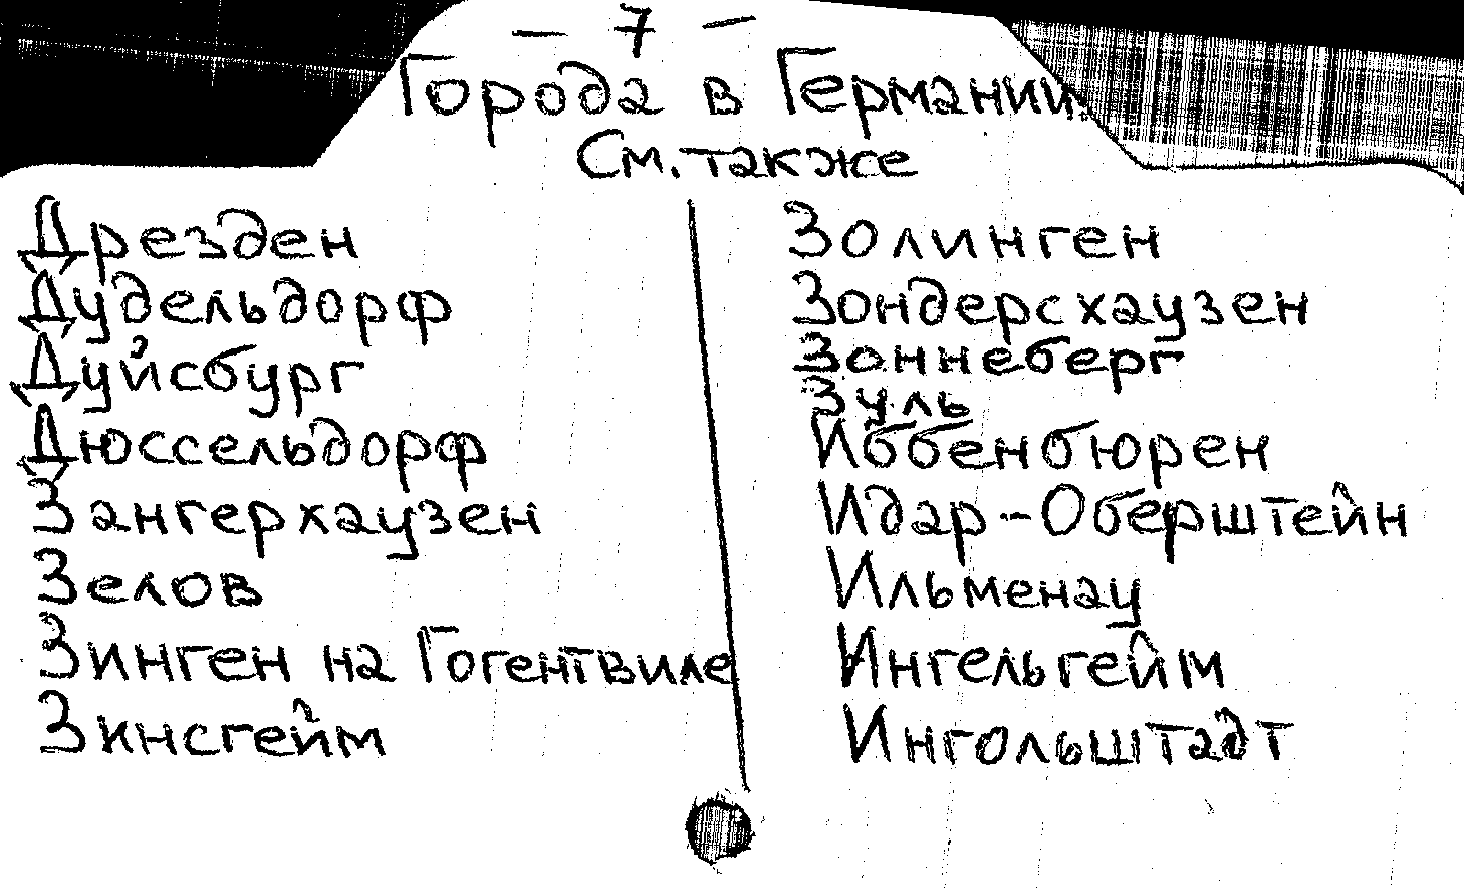 — 7 —
Города в Германии.
См. также
Дрезден
Дудельдорф
Дуйсбург
Дюссельдорф
Зангерхаузен
Зелов
Зинген на Гогентвиле
Зинсгейм
Золинген
Зондерсхаузен
Зоннеберг
Зуль
Иббенбюрен
Идар-Оберштейн
Ильменау
Ингельгейм
Ингольштадт